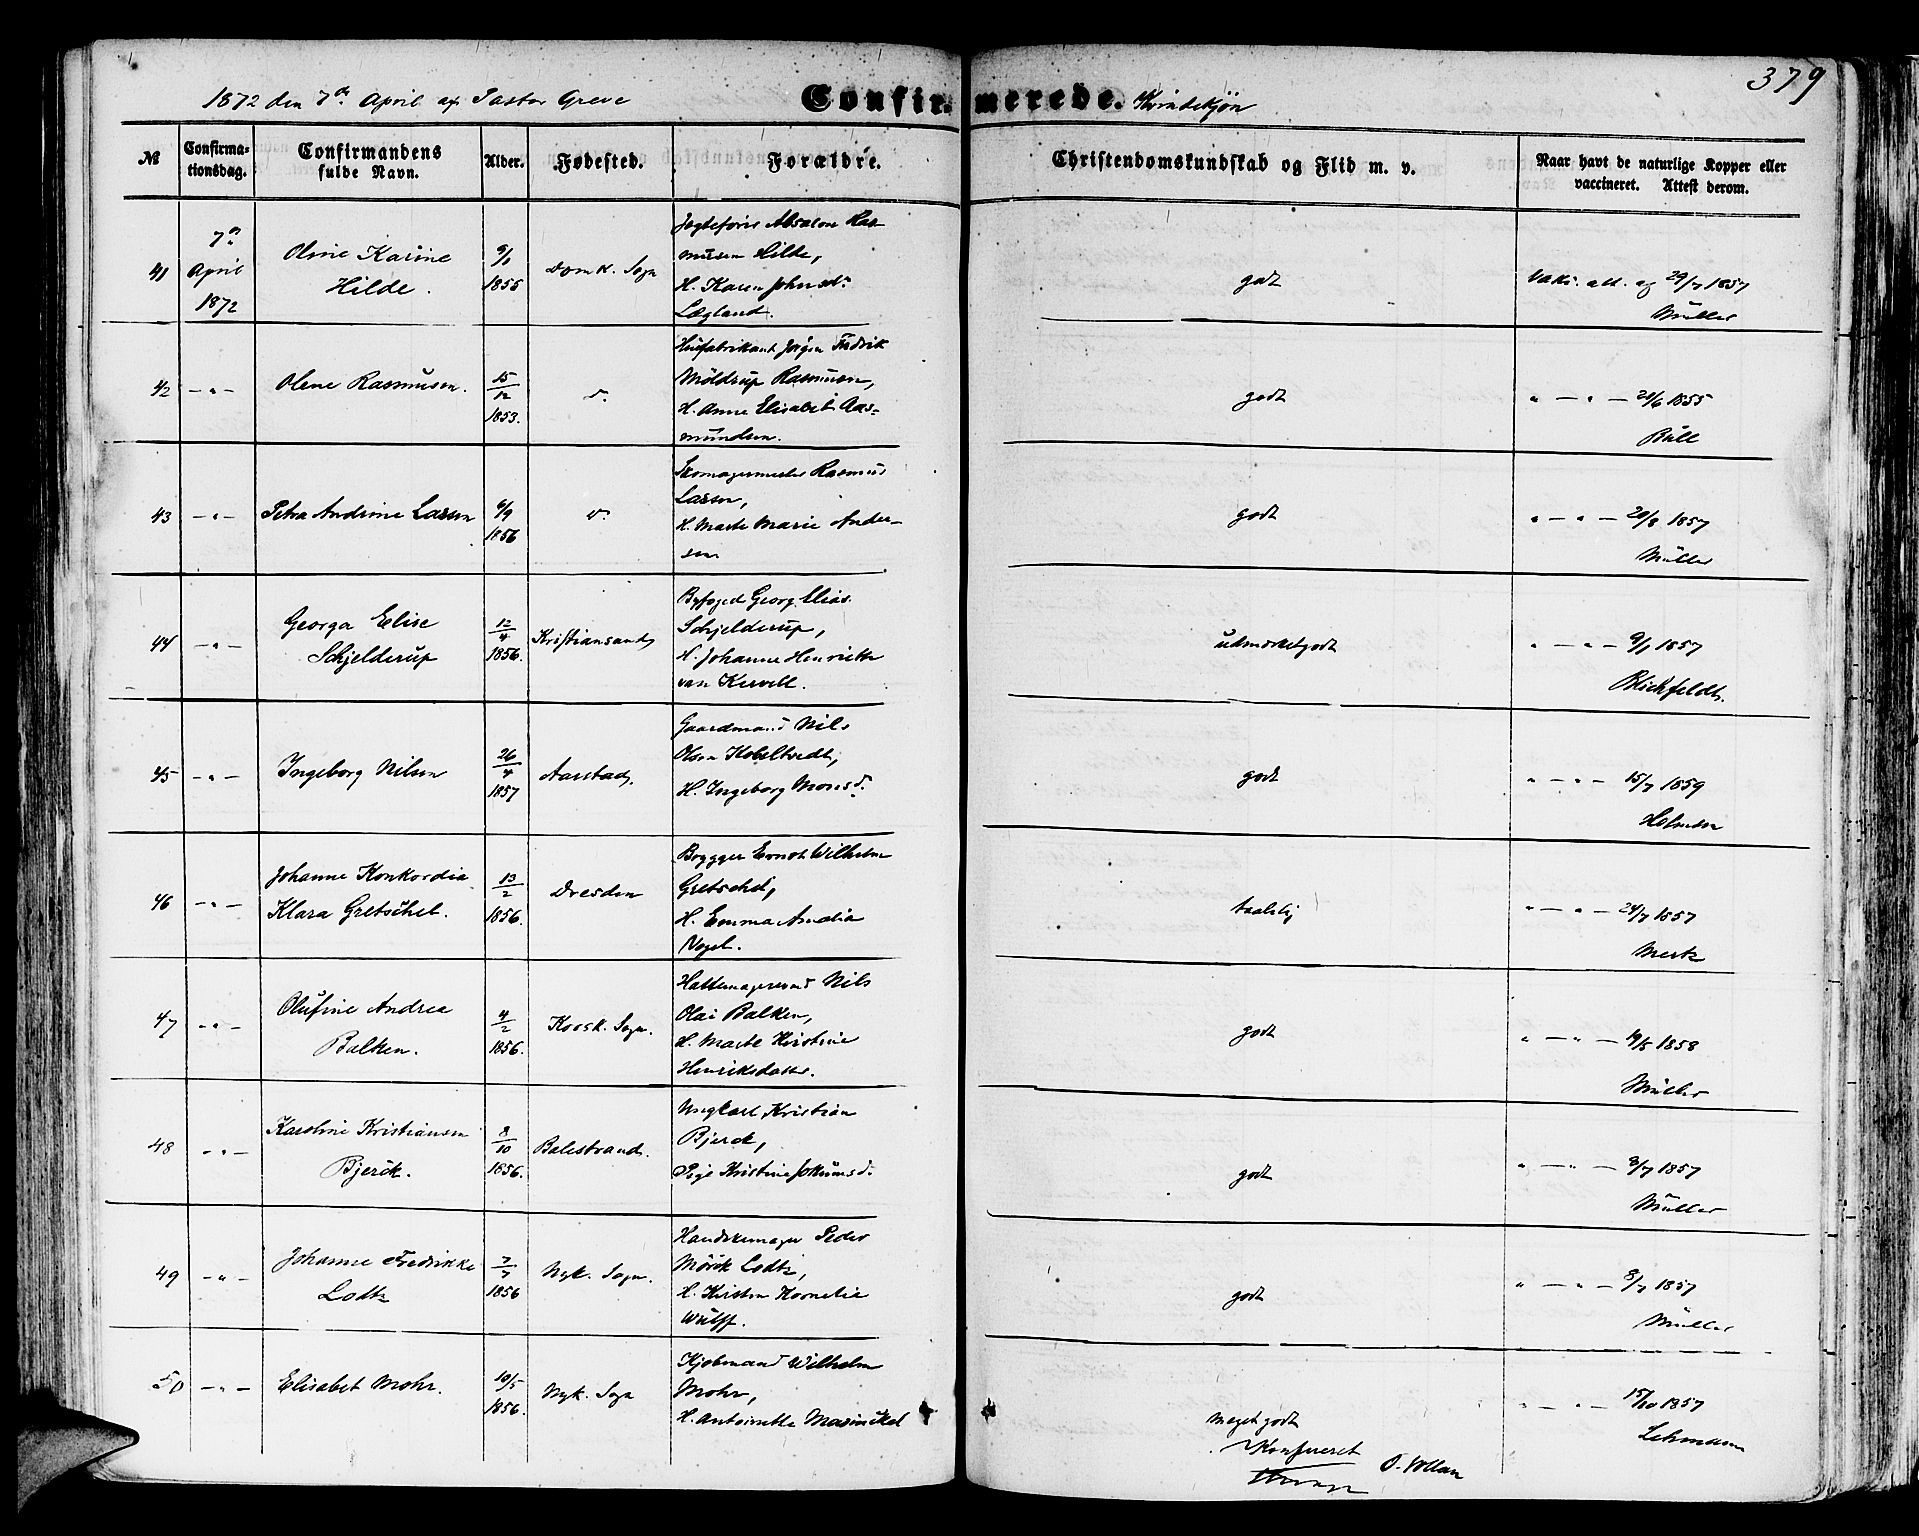 379
1872 den 7de April af Pastor Greve Confirmerede. Kvindekjøn
№ Confirma-tionsdag. Confirmandens fulde Navn. Alder. Fødested. Forældre. Christendomskundskab og Flid m. v. Naar havt de naturlige Kopper eller vaccineret. Attest derom.
41 7de April 1872
Oline Karine
Hilde.
9/1 1856
Domk. Sogn
Absalon Ras
musen Hilde,
H. Karen Johnsd.
Lægland.
godt
Vaks. att. af 29/7 1857
Müller
42 — " —
Olene Rasmusen.
15/12 1853.
d.
Jørgen Fredrik
Møldrup Rasmusen,
H. Anne Elisabet Aas-
mundsen.
godt
" — " — 20/6 1855
Büll
43 — " —
Petra Andrine Larsen
6/9 1856
d.
Skomagermester Rasmus
Larsen,
H. Marte Marie Ander-
sen
godt
" — " — 20/8 1857
Müller
44 — " —
Georga Elise
Schjelderup
12/4 1856.
Kristiansand,
Byfoged Georg Elias
Schjelderup,
H. Johanne Henriette
van Kervell.
udmærketgodt
" — " — 9/1 1857
Blichfeldt.
45 — " —
Ingeborg Nilsen
26/4 1857
Aarstad,
Gaardmand Nils
Olsen Kobeltvedt,
H. Ingeborg Monsd.
godt
" — " — 15/7 1859
Holmsen
46 — " —
Johanne Konkordia
Klara Gretschel.
13/2 1856.
Dresden
Brygger Ernst Wilhelm
Gretschel,
H. Emma Amalia
Vogel.
taalelig
" — " — 24/7 1857
47 — " —
Olufine Andrea
Balken.
4/2 1856.
Korsk. Sogn.
Hattemagersvend Nils
Olai Balken,
H. Marte Kirstine
Henriksdatter.
godt
" — " — 19/5 1858
Müller
48 — " —
Karoline Kristiansen
Bjerck.
8/10 1856.
Balestrand.
Ungkarl Kristian
Bjerck,
Pige Kristine Jokumsd.
godt
" — " — 8/7 1857
Müller
49 — " —
Johanne Fredrikke
Lodtz
7/7 1856
Nyk. Sogn.
Handskemager Peder
Mörik Lodtz,
H. Kirsten Kornelia
Wulff.
godt
" — " — 8/7 1857
Müller
50 — " —
Elisabet Mohr.
10/5 1856.
Nyk. Sogn
Kjøbmand Wilhelm
Mohr,
H. Antoinette
meget godt
" — " — 15/10 1857
Lehmann
Konfereret
O. Vollan